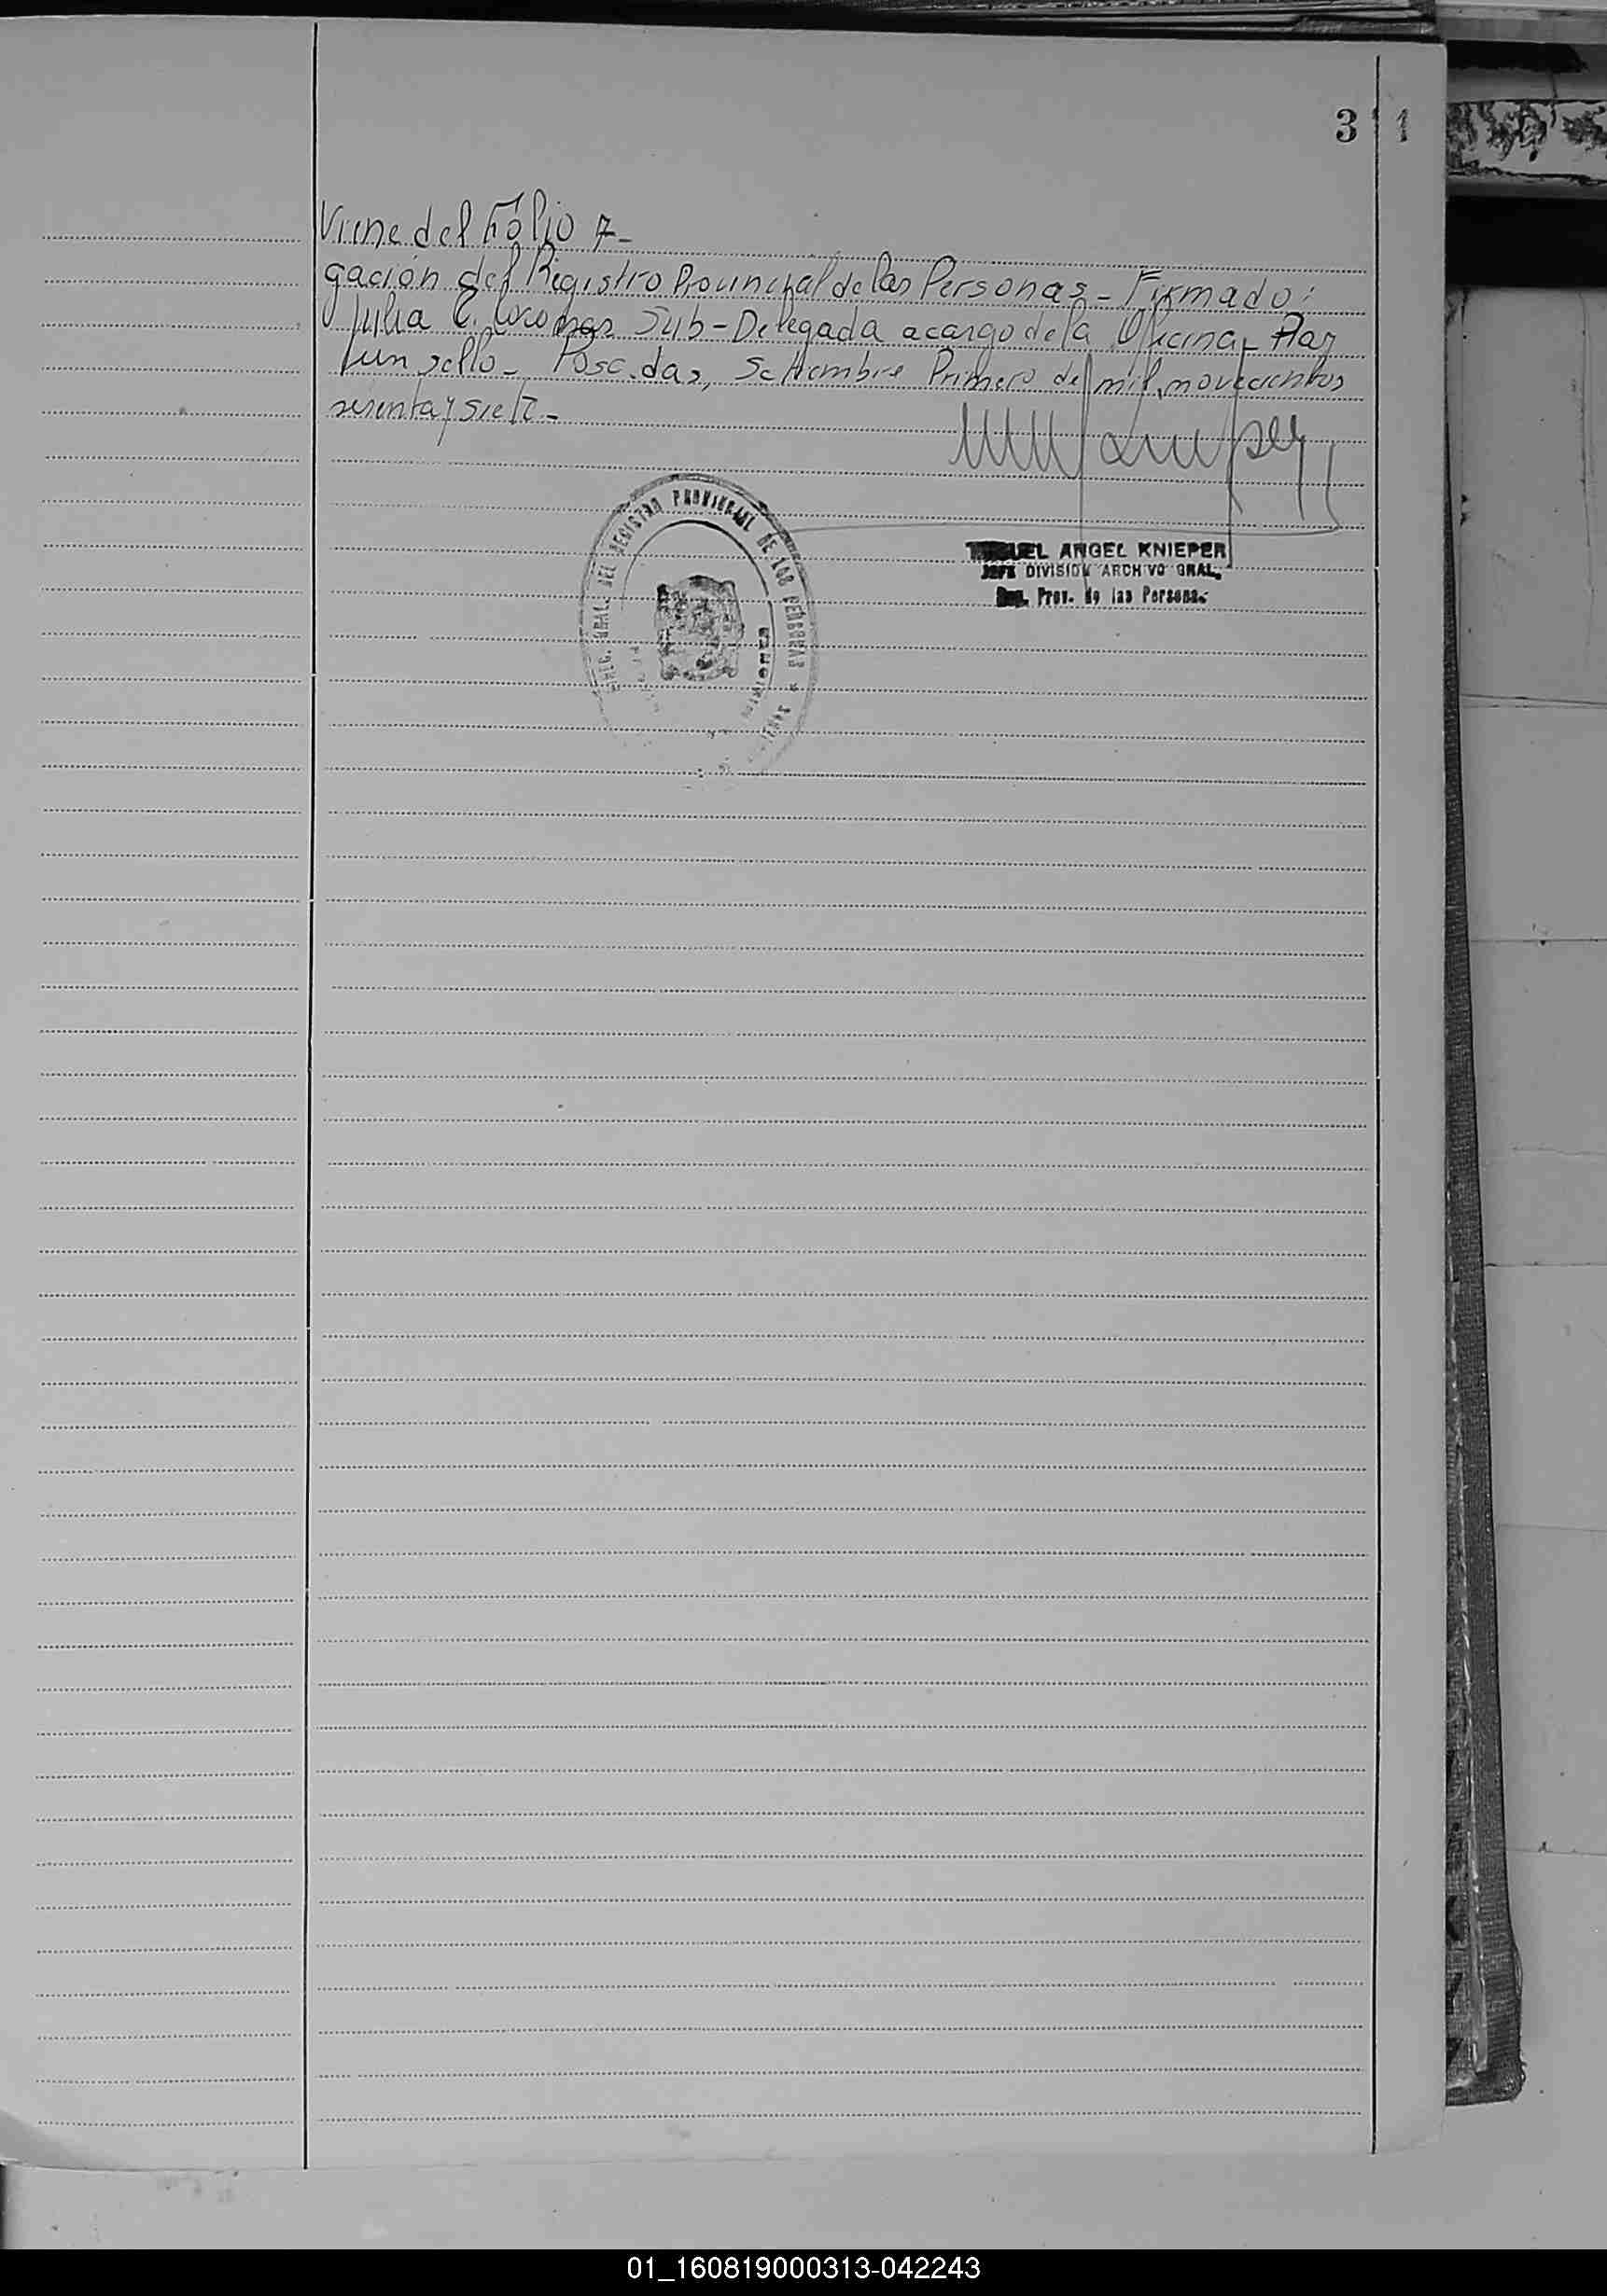 3 1
Viene del Fólio 7-
gación del Registro Provincial de las Personas - Firmado:
Julia C. Sub-Delegada a cargo de la Oficina - Hay
un sello - Posadas, Setiembre Primero de mil novecientos
sesenta y siete -
DIREC. GRAL. DEL REGISTRO PROVINCIAL DE LAS PERSONAS
MIGUEL ANGEL KNIEPER
JEFE DIVISION ARCHIVO GRAL.
Reg. Prov. de las Personas
01_160819000313-042243